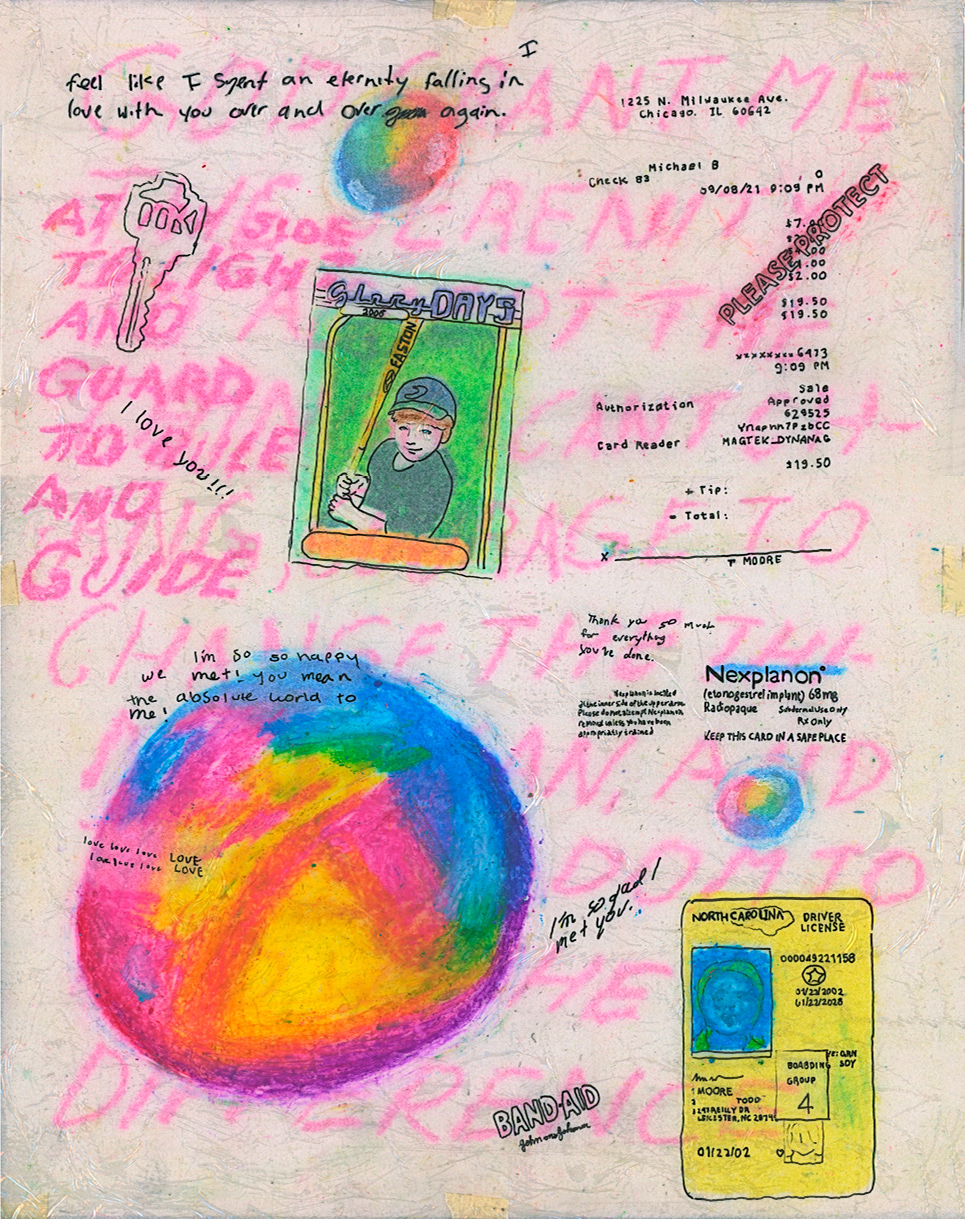 I
feel like I spent an eternity falling in
love with you over and over again.
GOD GRANT ME
THE SERENITY
AT MY SIDE
TO LIGHT
AND
GUARD
TO RULE
AND
GUIDE
ACCEPT THE
COURAGE TO
CHANGE THE
AND
TO
THE
DIFFERENCE
1225 N. Milwaukee Ave.
Chicago. IL 60642
Michael B
Check 83
0
09/08/21 9:09 PM
$2.00
$19.50
$19.50
PLEASE PROTECT
xxxxxxxx6473
9:09 PM
Sale
Authorization Approved
629525
Card Reader MAGTEK_DYNAMAG
$19.50
+ Tip:
= Total:
x
T MOORE
Glory DAYS
2006
EASTON
I love you!!!
Thank you so much
for everything
you've done.
Nexplanon
(etonogestrel implant) 68mg
Radiopaque Subdermal Use Only
Rx Only
KEEP THIS CARD IN A SAFE PLACE
Nexplanon is located
at the inner side of the upper arm.
Please do not attempt Nexplanon
removal unless you have been
appropriately trained
I'm so so happy
we met! you mean
the absolute world to
me!
love love love LOVE
love love love LOVE
I'm so glad I
met you.
NORTH CAROLINA DRIVER
LICENSE
000049221158
01/22/2002
01/22/2028
BOARDING
GROUP
4
MOORE
TODD
LEICESTER, NC
01/22/02
BAND-AID